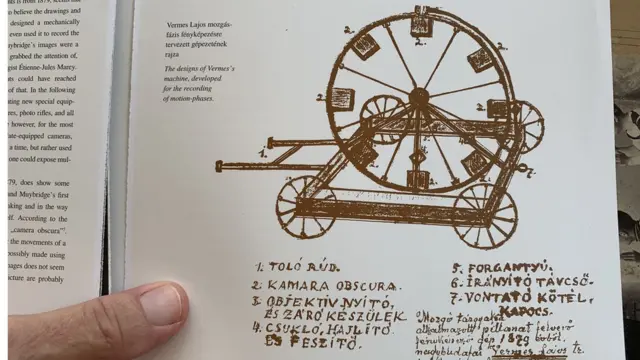 is from 1879, seems that
to believe the drawings and
designed a mechanically
even used it to record the
Muybridge's images were a
grabbed the attention of,
gist Étienne-Jules Marey.
ts could have reached
of that. In the following
ting new special equip-
res, photo rifles, and all
however, for the most
ate-equipped cameras,
a time, but rather used
one could expose mul-
79, does show some
and Muybridge's first
aking and in the way
off. According to the
„camera obscura"
the movements of a
possibly made using
mages does not seem
cture are probably
Vermes Lajos mozgás-
fázis fényképezésre
tervezett gépezetének
rajza
The designs of Vermes's
machine, developed
for the recording
of motion-phases.
2.
2.
2.
2.
2.
1.
7.
1. TOLÓ RÚD.
2. KAMARA OBSCURA.
3. OBJEKTIV NYITÓ,
ÉS ZÁRÓ KÉSZÜLÉK
4. CSUKLÓ, HAJLITÓ
ÉS FESZITŐ.
5. FORGANTYÚ.
6. IRÁNYITÓ TÁVCSŐ.
7. VONTATÓ KÖTÉL,
KAPOCS.
Mozgó tárgyakra
alkalmazott pillanat felvevő
gép 1879 ből.
Vermes Lajos